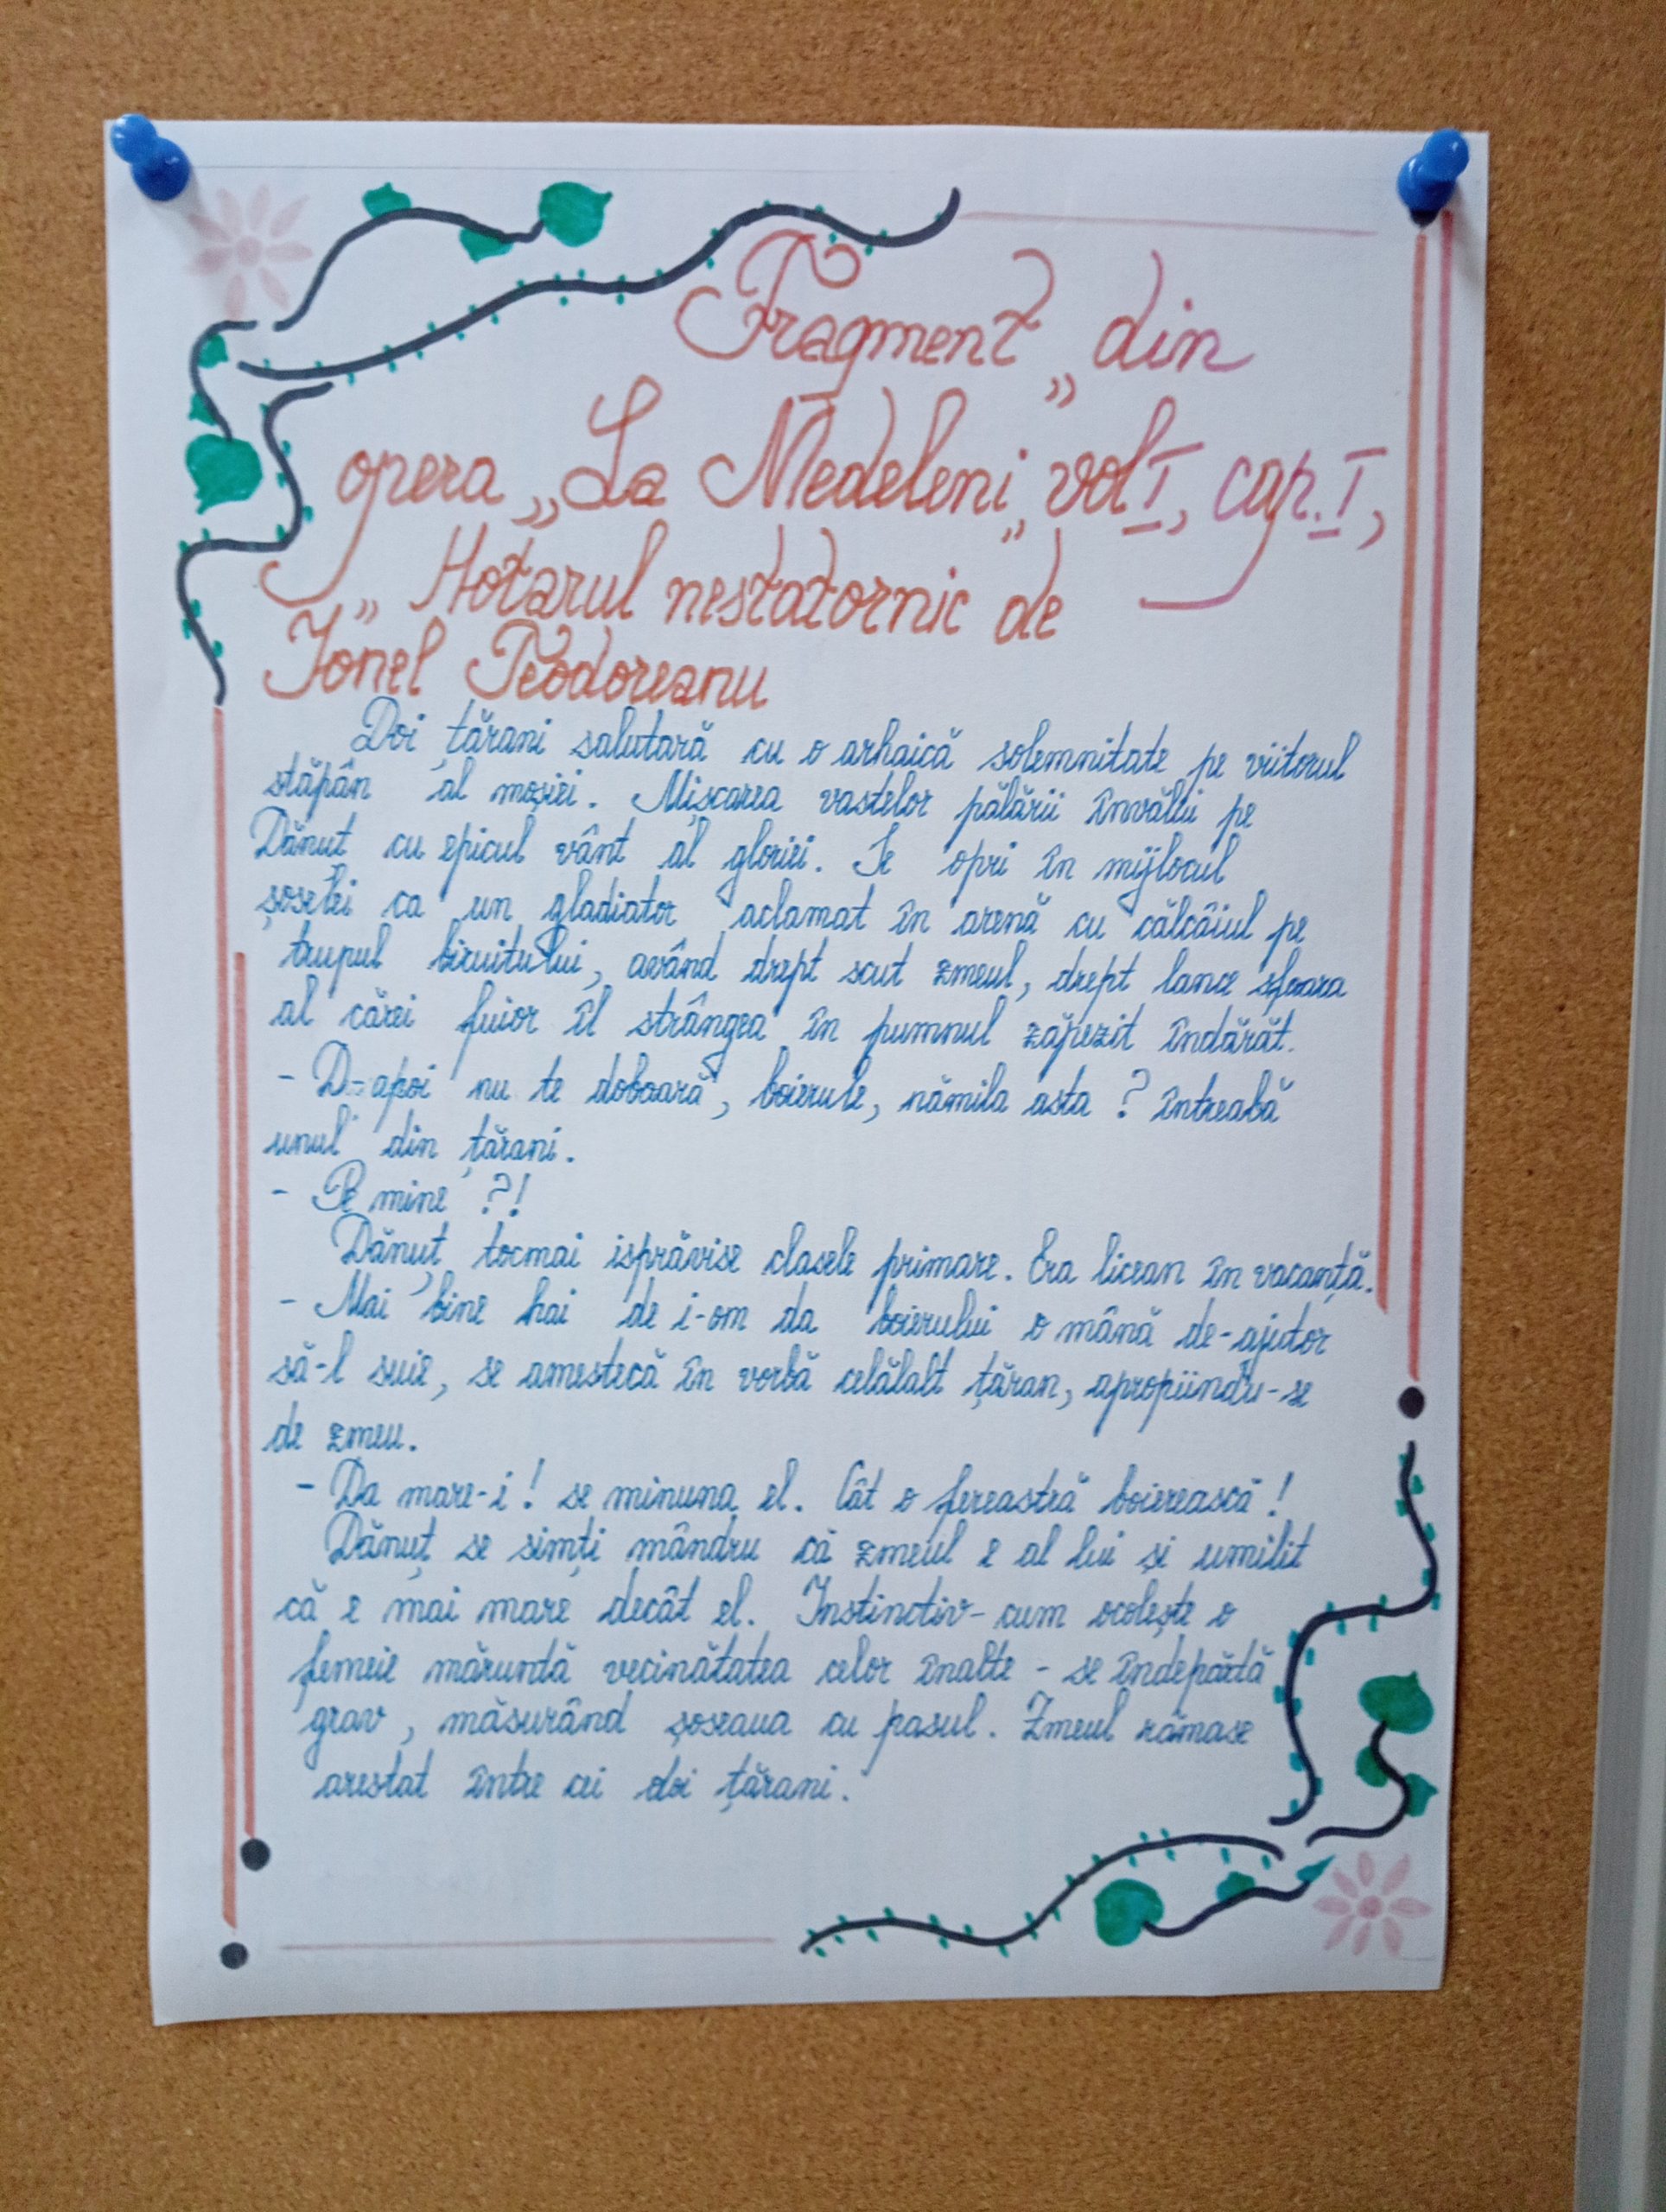 Fragment „ din
opera „La Medeleni„ vol I, cap. I,
„ Hotarul nestatornic de
Ionel Teodoreanu
Doi țărani salutară cu o arhaică solemnitate pe viitorul
stăpân al moșiei. Mișcarea vastelor pălării învălui pe
Dănuț cu epicul vânt al gloriei. Se opri în mijlocul
șoselei ca un gladiator aclamat în arenă cu călcâiul pe
trupul biruitului, având drept scut zmeul, drept lance sfoara
al cărei fuior îl strângea în pumnul zăpezit îndărăt.
- D-apoi nu te doboară, boierule, nămila asta ? întreabă
unul din țărani.
- Pe mine ?!
Dănuț tocmai isprăvise clasele primare. Era licean în vacanță.
- Mai bine hai de i-om da boierului o mână de-ajutor
să-l suie, se amestecă în vorbă celălalt țăran, apropiindu-se
de zmeu.
- Da mare-i ! se minuna el. Cât o fereastră boierească !
Dănuț se simți mândru că zmeul e al lui și umilit
că e mai mare decât el. Instinctiv - cum ocolește o
femeie măruntă vecinătatea celor înalte - se îndepărtă
grav, măsurând șoseaua cu pasul. Zmeul rămase
arestat între cei doi țărani.